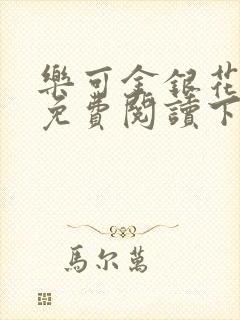 樂可金銀花
免費閱讀下
馬尔萬